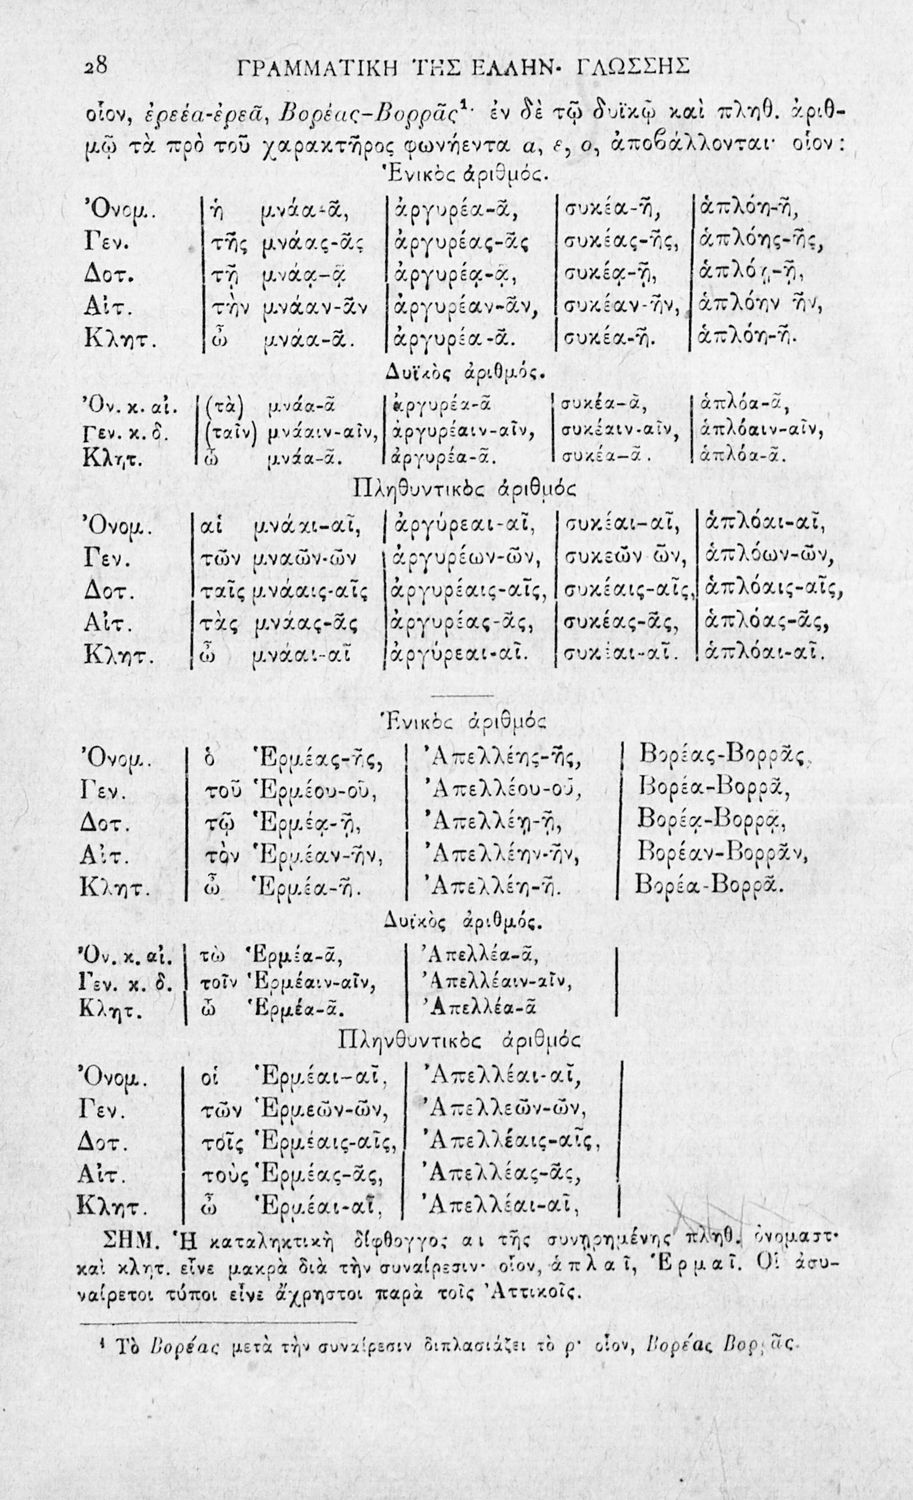 28 ΓΡΑΜΜΑΤΙΚΗ ΤΗΣ ΕΛΛΗΝ. ΓΛΩΣΣΗΣ
οἷον, ἐρεέα-ἐρεᾶ, Βορέας–Βορρᾶς¹· ἐν δὲ τῷ δυϊκῷ καὶ πληθ. ἀριθ-
μῷ τὰ πρὸ τοῦ χαρακτῆρος φωνήεντα α, ε, ο, ἀποβάλλονται· οἷον:
Ἑνικὸς ἀριθμός.
Ὀνομ. ἡ μνάα-ᾶ, ἀργυρέα-ᾶ, συκέα-ῆ, ἁπλόη-ῆ,
Γεν. τῆς μνάας-ᾶς ἀργυρέας-ᾶς συκέας-ῆς, ἁπλόης-ῆς,
Δοτ. τῇ μνάᾳ-ᾷ ἀργυρέᾳ-ᾷ, συκέᾳ-ῇ, ἁπλόῃ-ῇ,
Αἰτ. τὴν μνάαν-ᾶν ἀργυρέαν-ᾶν, συκέαν-ῆν, ἁπλόην ῆν,
Κλητ. ὦ μνάα-ᾶ. ἀργυρέα-ᾶ. συκέα-ῆ. ἁπλόη-ῆ.
Δυϊκὸς ἀριθμός.
Ὀν. κ. αἰ. (τὰ) μνάα-ᾶ ἀργυρέα-ᾶ συκέα-ᾶ, ἁπλόα-ᾶ,
Γεν. κ. δ. (ταῖν) μνάαιν-αῖν, ἀργυρέαιν-αῖν, συκέαιν-αῖν, ἁπλόαιν-αῖν,
Κλητ. ὦ μνάα-ᾶ. ἀργυρέα-ᾶ. συκέα-ᾶ. ἁπλόα-ᾶ.
Πληθυντικὸς ἀριθμός
Ὀνομ. αἱ μνάαι-αῖ, ἀργύρεαι-αῖ, συκέαι-αῖ, ἁπλόαι-αῖ,
Γεν. τῶν μναῶν-ῶν ἀργυρέων-ῶν, συκεῶν ῶν, ἁπλόων-ῶν,
Δοτ. ταῖς μνάαις-αῖς ἀργυρέαις-αῖς, συκέαις-αῖς, ἁπλόαις-αῖς,
Αἰτ. τὰς μνάας-ᾶς ἀργυρέας-ᾶς, συκέας-ᾶς, ἁπλόας-ᾶς,
Κλητ. ὦ μνάαι-αῖ ἀργύρεαι-αῖ. συκέαι-αῖ. ἁπλόαι-αῖ.
Ἑνικὸς ἀριθμός
Ὀνομ. ὁ Ἑρμέας-ῆς, Ἀπελλέης-ῆς, Βορέας-Βορρᾶς,
Γεν. τοῦ Ἑρμέου-οῦ, Ἀπελλέου-οῦ, Βορέα-Βορρᾶ,
Δοτ. τῷ Ἑρμέᾳ-ῇ, Ἀπελλέῃ-ῇ, Βορέᾳ-Βορρᾷ,
Αἰτ. τὸν Ἑρμέαν-ῆν, Ἀπελλέην-ῆν, Βορέαν-Βορρᾶν,
Κλητ. ὦ Ἑρμέα-ῆ. Ἀπελλέη-ῆ. Βορέα-Βορρᾶ.
Δυϊκὸς ἀριθμός.
Ὀν. κ. αἰ. τὼ Ἑρμέα-ᾶ, Ἀπελλέα-ᾶ,
Γεν. κ. δ. τοῖν Ἑρμέαιν-αῖν, Ἀπελλέαιν-αῖν,
Κλητ. ὦ Ἑρμέα-ᾶ. Ἀπελλέα-ᾶ
Πληνθυντικὸς ἀριθμός
Ὀνομ. οἱ Ἑρμέαι-αῖ, Ἀπελλέαι-αῖ,
Γεν. τῶν Ἑρμεῶν-ῶν, Ἀπελλεῶν-ῶν,
Δοτ. τοῖς Ἑρμέαις-αῖς, Ἀπελλέαις-αῖς,
Αἰτ. τοὺς Ἑρμέας-ᾶς, Ἀπελλέας-ᾶς,
Κλητ. ὦ Ἑρμέαι-αῖ, Ἀπελλέαι-αῖ,
ΣΗΜ. Ἡ καταληκτικὴ δίφθογγος αι τῆς συνῃρημένης πληθ. ὀνομαστ.
καὶ κλητ. εἶνε μακρὰ διὰ τὴν συναίρεσιν· οἷον, ἁπλαῖ, Ἑρμαῖ. Οἱ ἀσυ-
ναίρετοι τύποι εἶνε ἄχρηστοι παρὰ τοῖς Ἀττικοῖς.
¹ Τὸ Βορέας μετὰ τὴν συναίρεσιν διπλασιάζει τὸ ρ· οἷον, Βορέας Βορρᾶς.